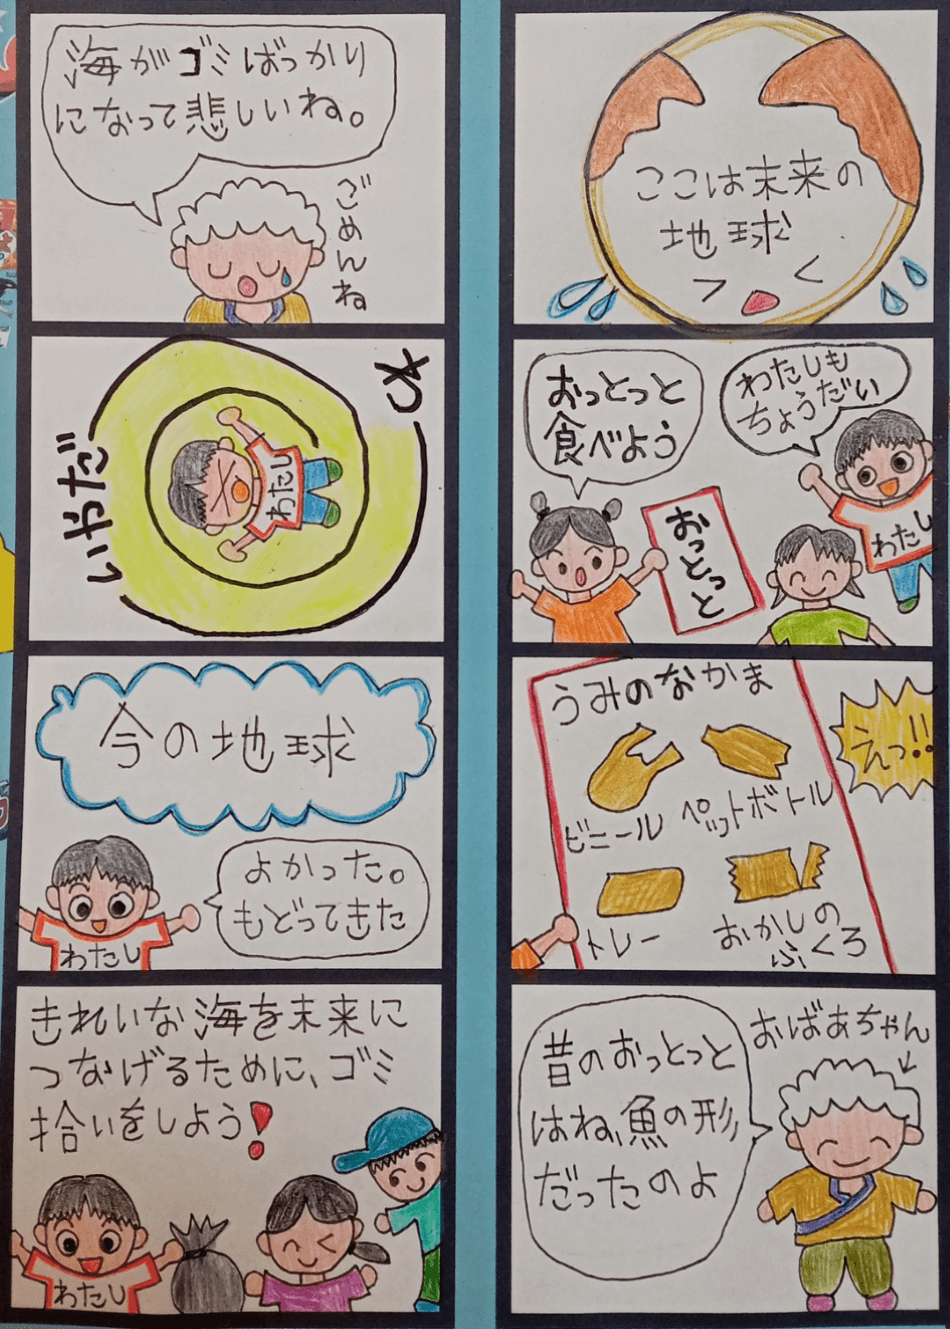 ここは未来の
地球
おっとっと
食べよう
わたしも
ちょうだい
おっとっと
わたし
うみのなかま
ビニール
ペットボトル
トレー
おかしの
ふくろ
えっ!!
おばあちゃん
昔のおっとっと
はね、魚の形
だったのよ
海がゴミばっかり
になって悲しいね。
ごめんね
いやだ
わたし
今の地球
よかった。
もどってきた
わたし
きれいな海を未来に
つなげるために、ゴミ
拾いをしよう!
わたし